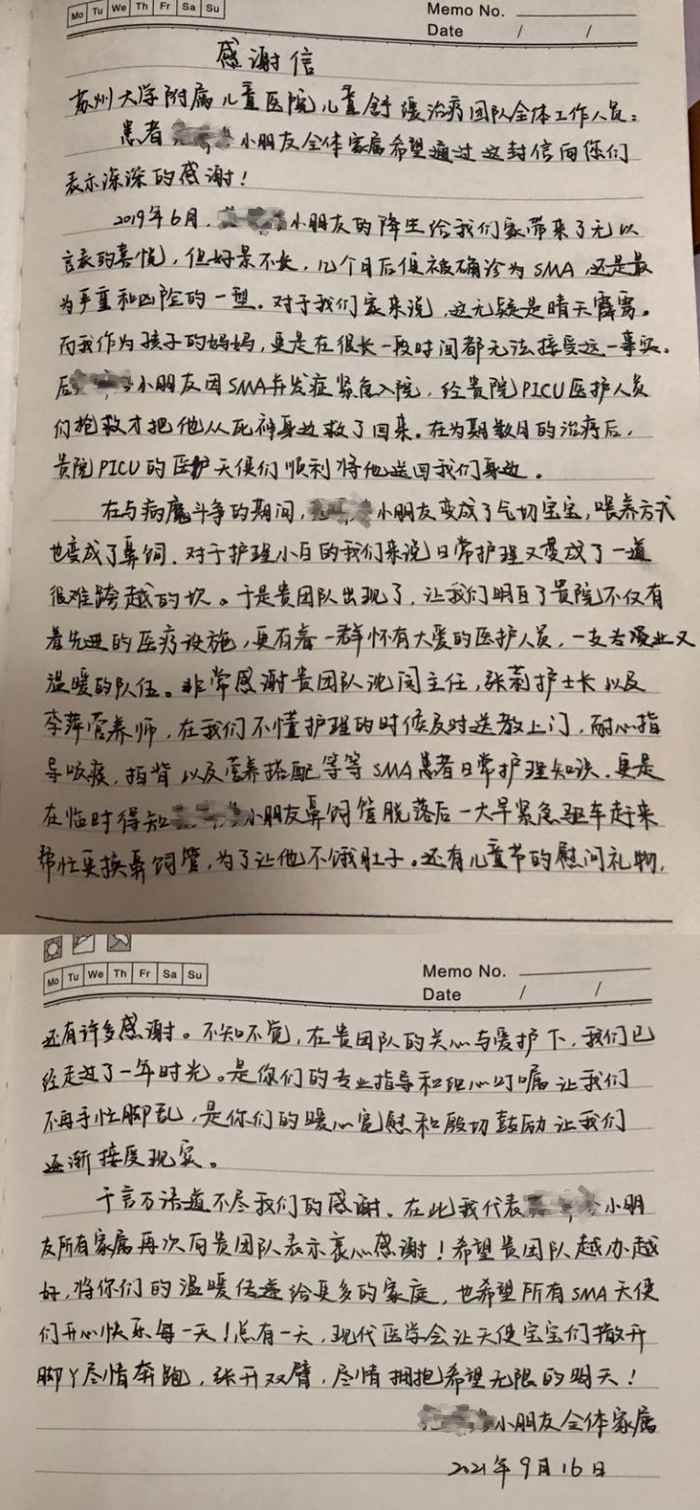 Mo Tu We Th Fr Sa Su
Memo No.
Date / /
感谢信
苏州大学附属儿童医院儿童舒缓治疗团队全体工作人员：
患者 小朋友全体家属希望通过这封信向你们
表示深深的感谢！
2019年6月， 小朋友的降生给我们家带来了无以
言表的喜悦，但好景不长，几个月后便被确诊为SMA，还是最
为严重和凶险的一型。对于我们家来说，这无疑是晴天霹雳。
而我作为孩子的妈妈，更是在很长一段时间都无法接受这一事实。
后 小朋友因SMA并发症紧急入院，经贵院PICU医护人员
们抢救才把他从死神身边救了回来。在为期数月的治疗后，
贵院PICU的医护天使们顺利将他送回我们身边。
在与病魔斗争的期间， 小朋友变成了气切宝宝，喂养方式
也变成了鼻饲，对于护理小白的我们来说日常护理又变成了一道
很难跨越的坎。于是贵团队出现了，让我们明白了贵院不仅有
着先进的医疗设施，更有着一群怀有大爱的医护人员，一支专业又
温暖的队伍。非常感谢贵团队沈闵主任，张莉护士长以及
李萍营养师，在我们不懂护理的时候及时送教上门，耐心指
导吸痰，拍背以及营养搭配等等SMA患者日常护理知识。更是
在临时得知 小朋友鼻饲管脱落后一大早紧急驱车赶来
帮忙更换鼻饲管，为了让他不饿肚子。还有儿童节的慰问礼物，
Mo Tu We Th Fr Sa Su
Memo No.
Date / /
还有许多感谢。不知不觉，在贵团队的关心与爱护下，我们已
经走过了一年时光。是你们的专业指导和担心叮嘱让我们
不再手忙脚乱，是你们的暖心宽慰和殷切鼓励让我们
逐渐接受现实。
千言万语道不尽我们的感谢，在此我代表 小朋
友所有家属再次向贵团队表示衷心感谢！希望贵团队越办越
好，将你们的温暖传递给更多的家庭，也希望所有SMA天使
们开心快乐每一天！总有一天，现代医学会让天使宝宝们撒开
脚丫尽情奔跑，张开双臂，尽情拥抱希望无限的明天！
小朋友全体家属
2021年9月16日